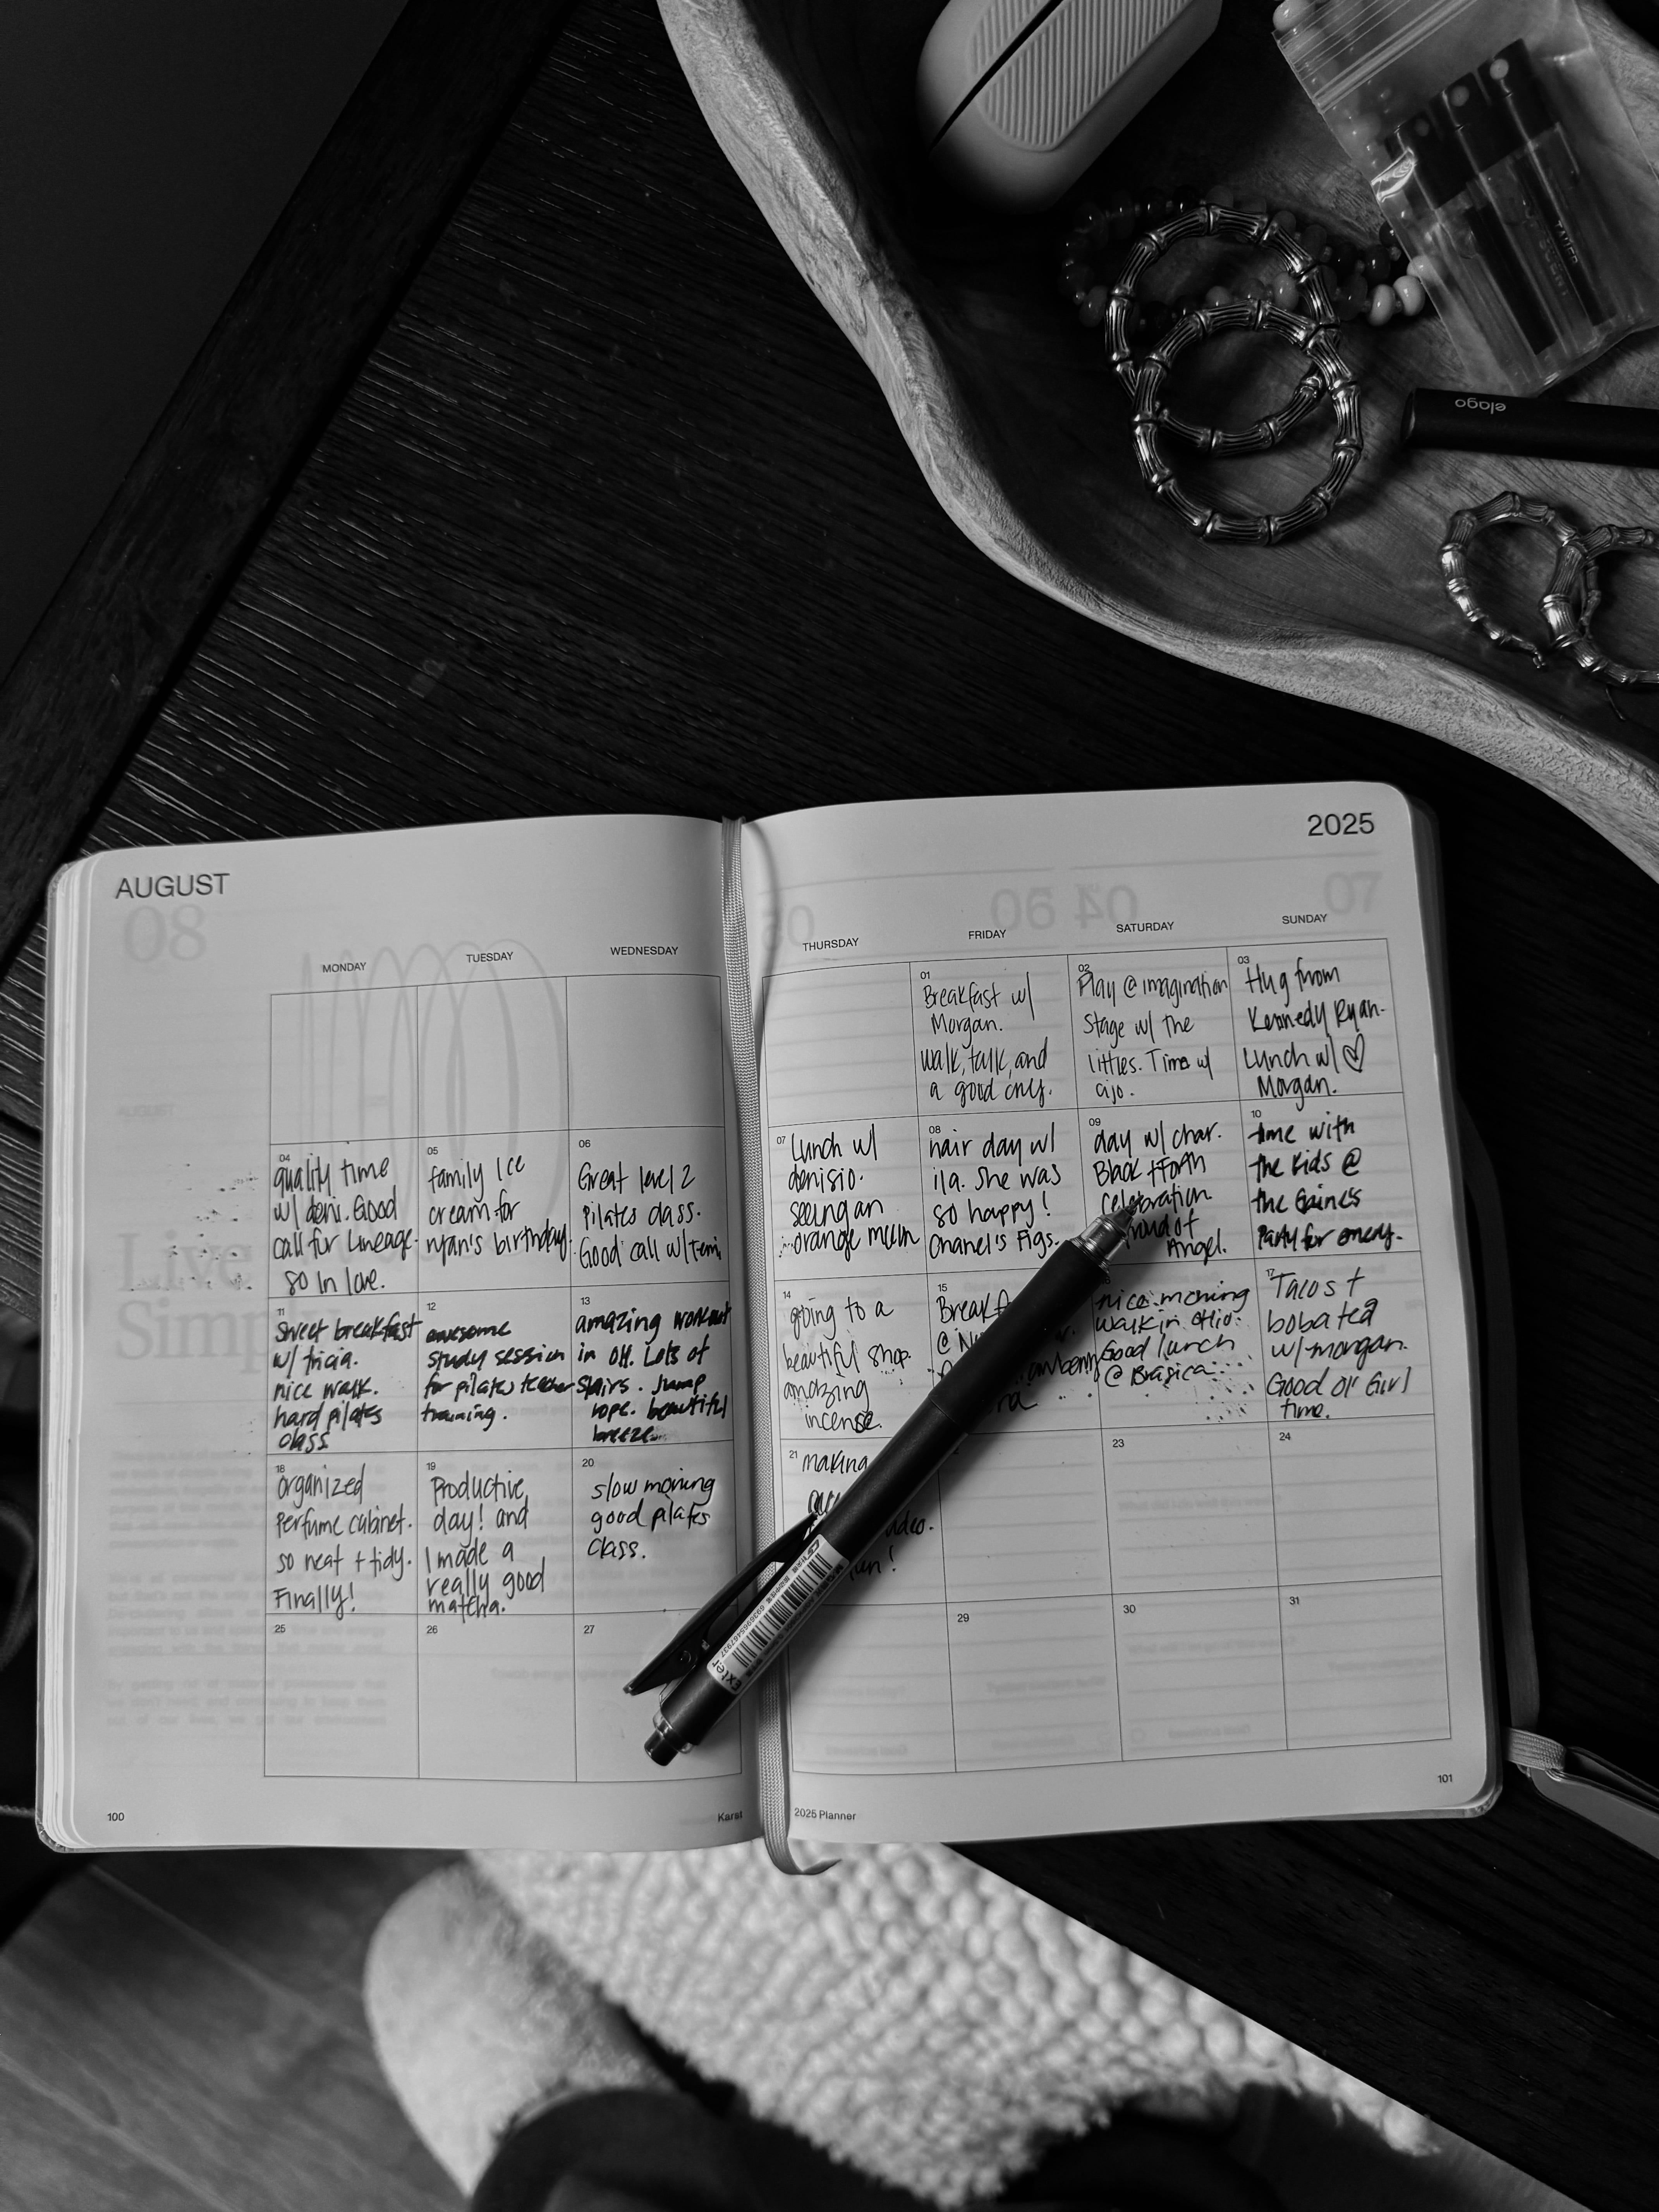 elago
2025
AUGUST
MONDAY
TUESDAY
WEDNESDAY
THURSDAY
FRIDAY
SATURDAY
SUNDAY
01
Breakfast w/
Morgan.
walk, talk, and
a good cry.
02
Play @ imagination
Stage w/ the
littles. Time w/
ajo.
03
Hug from
Kennedy Ryan.
Lunch w/ ♡
Morgan.
04
quality time
w/ deni. Good
call for Lineage.
so in love.
05
family Ice
cream for
ryan's birthday!
06
Great level 2
pilates class.
Good call w/
07
Lunch w/
denisio.
seeing an
orange
08
hair day w/
ila. She was
so happy!
Chanel's Figs.
09
day w/ char.
Black + Forth
celebration
Angel.
10
time with
the kids @
the Gaines
Party for emery.
11
Sweet breakfast
w/ tricia.
nice walk.
hard pilates
class
12
awesome
study session
for pilates teacher
training.
13
amazing workout
in OH. Lots of
stairs. Jump
rope. beautiful
breeze.
14
going to a
beautiful shop.
amazing
incense.
15
@
nice morning
walk in Ohio.
Good lunch
@ Brasica.
17
Tacos +
boba tea
w/ morgan.
Good ol' Girl
time.
18
Organized
Perfume cabinet.
so neat + tidy.
Finally!
19
Productive
day! and
I made a
really good
matcha.
20
slow morning
good pilates
class.
21
making
23
24
25
26
27
29
30
31
Exter
100
Karst
2025 Planner
101